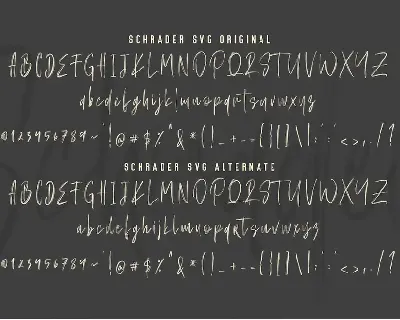 SCHRADER SVG ORIGINAL
ABCDEFGHIJKLMNOPQRSTUVWXYZ
abcdefghijklmnopqrstuvwxyz
0123456789~`!@#$%^&*()_+-={}[]|\:;"'<>,./?
SCHRADER SVG ALTERNATE
ABCDEFGHIJKLMNOPQRSTUVWXYZ
abcdefghijklmnopqrstuvwxyz
0123456789~`!@#$%^&*()_+-={}[]|\:;"'<>,./?